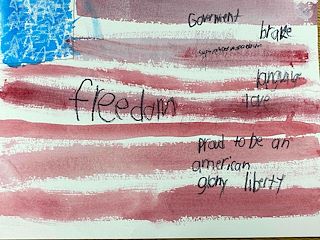 Government
brave
language
freedom
love
proud to be an
american
glory liberty